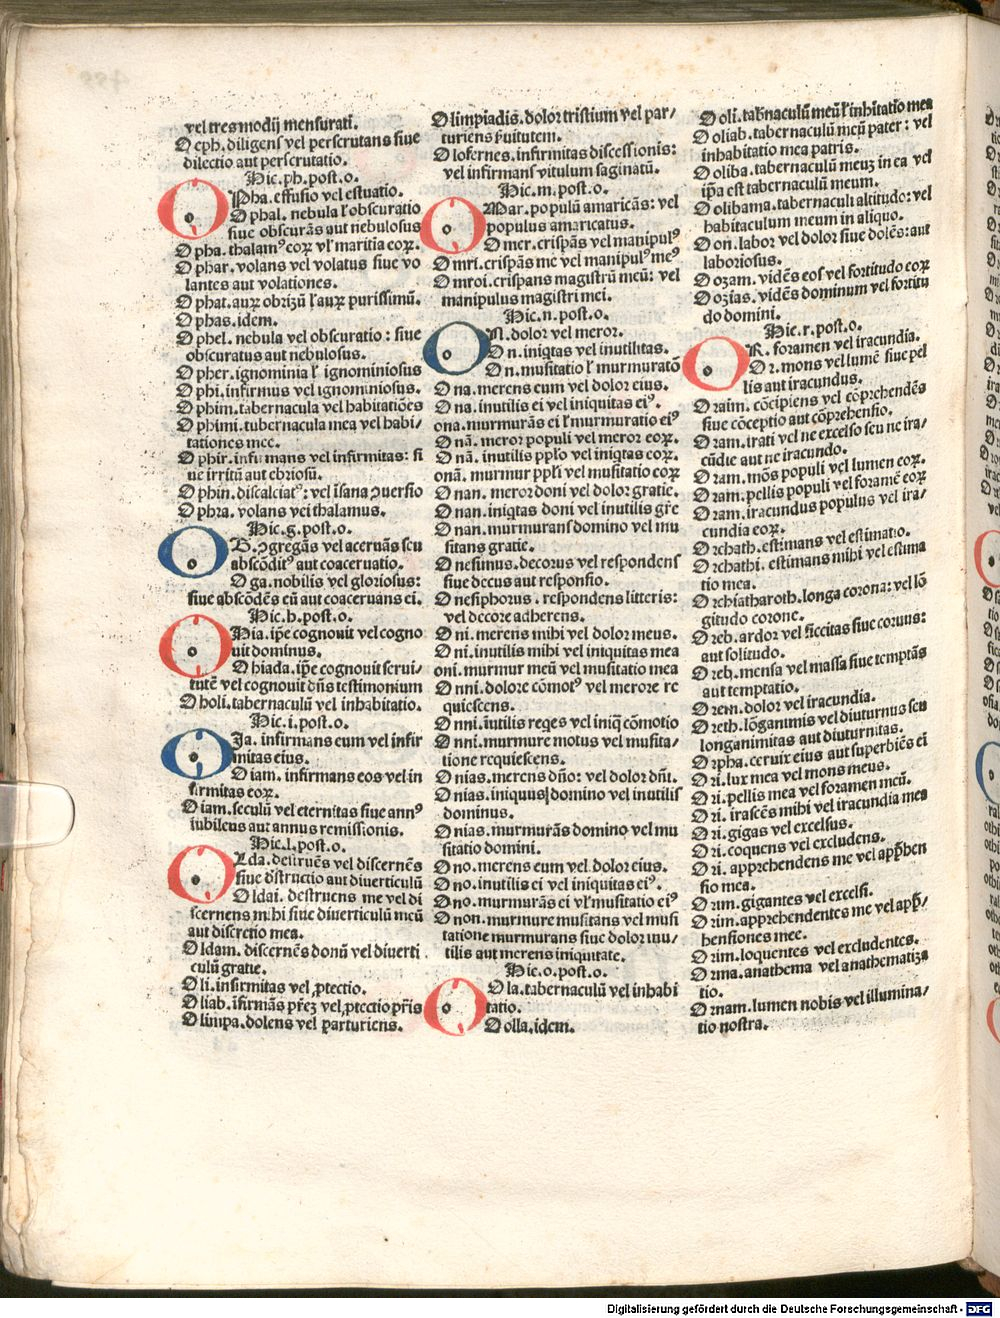 vel tres modij mensurati.
Oeph. diligens vel perscrutans siue
dilectio aut perscrutatio.
Hic. ph. post. o.
OPha. effusio vel estuatio.
Ophal. nebula ł obscuratio
siue obscurãs aut nebulosus
Opha. thalamꝰ eoꝝ vł maritia eoꝝ.
Ophar. volans vel volatus siue vo
lantes aut volationes.
Ophat. auꝝ obrizũ ł auꝝ purissimũ.
Ophas. idem.
Ophel. nebula vel obscuratio : siue
obscuratus aut nebulosus.
Opher. ignominia ł ignominiosus
Ophi. infirmus vel ignominiosus.
Ophim. tabernacula vel habitatiões
Ophimi. tubernacula mea vel habi/
tationes mee.
Ophir. infirmans vel infirmitas: si
ue irritũ aut ebriosũ.
Ophin. discalciatꝰ: vel ĩsana ꝯuersio
Ophra. volans vel thalamus.
Hic. g. post. o.
OG. ꝯgregãs vel aceruãs seu
absconditꝰ aut coaceruatio.
Oga. nobilis vel gloriosus:
siue abscõdẽs eũ aut coaceruans ei.
Hic. h. post. o.
OHia. ip̃e cognouit vel cogno
uit dominus.
Ohiada. ip̃e cognouit serui/
tutẽ vel cognouit dñs testimonium
Oholi. tabernaculũ vel inhabitatio.
Hic. i. post. o.
OJa. infirmans eum vel infir
mitas eius.
Oiam. infirmans eos vel in
firmitas eoꝝ.
Oiam. seculũ vel eternitas siue annꝰ
iubileus aut annus remissionis.
Hic. l. post. o.
OLda. destruẽs vel discernẽs
siue distructio aut diuerticulũ
Oldai. destruens me vel di
scernens mihi siue diuerticulũ meũ
aut discretio mea.
Oldam. discernẽs donũ vel diuerti
culũ gratie.
Oli. infirmitas vel ꝓtectio.
Oliab. ĩfirmãs pr̃ez vel ꝓtectio pr̃is
Olimpa. dolens vel parturiens.
Olimpiadis. dolor tristium vel par/
turiens ẜuitutem.
Olofernes. infirmitas discessionis:
vel infirmans vitulum saginatũ.
Hic. m. post. o.
OMar. populũ amaricãs: vel
populus amaricatus.
Omer. crispãs vel manipulꝰ
Omri. crispãs me vel manipulꝰ meꝰ
Omroi. crispans magistrũ meũ: vel
manipulus magistri mei.
Hic. n. post. o.
ON. dolor vel meror.
On. iniq̃tas vel inutilitas.
On. musitatio ł murmuratõ
Ona. merens eum vel dolor eius.
Ona. inutilis ei vel iniquitas eiꝰ.
ona. murmurãs ei ł murmuratio eiꝰ
Onã. meror populi vel meror eoꝝ.
Onã. inutilis ppľo vel iniq̃tas eoꝝ.
onã. murmur ppłi vel musitatio eoꝝ
Onan. meror doni vel dolor gratie.
Onan. iniq̃tas doni vel inutilis gr̃e
Onan. murmurans domino vel mu
sitans gratie.
Onesimus. decorus vel respondens
siue decus aut responsio.
Onesiphorus. respondens litteris:
vel decore adherens.
Oni. merens mihi vel dolor meus.
Oni. inutilis mihi vel iniquitas mea
oni. murmur meũ vel musitatio mea
Onni. dolore cõmotꝰ vel merore re
quiescens.
Onni. ĩutilis reqẽs vel iniq̃ cõmotio
Onni. murmure motus vel musita/
tione requiescens.
Onias. merens dño: vel dolor dñi.
Onias. iniquus domino vel inutilis
dominus.
Onias. murmurãs domino vel mu
sitatio domini.
Ono. merens eum vel dolor eius.
Ono. inutilis ei vel iniquitas eiꝰ.
Ono. murmurãs ei vł musitatio eiꝰ
Onon. murmure musitans vel musi
tatione murmurans siue dolor inu/
tilis aut merens iniquitate.
Hic. o. post. o.
OOla. tabernaculũ vel inhabi
tatio.
Oolla. idem.
Ooli. tabñaculũ meũ ł inhĩtatio mea
Ooliab. tabernaculũ meũ pater : vel
inhabitatio mea patris.
Ooliba. tabernaculũ meuz in ea vel
ip̃a est tabernaculũ meum.
Oolibama. tabernaculi altitudo: vel
habitaculum meum in aliquo.
Oon. labor vel dolor siue dolẽs: aut
laboriosus.
Oozam. vidẽs eos vel fortitudo eoꝝ
Oozias. vidẽs dominum vel fortitu
do domini.
Hic. r. post. o.
OR. foramen vel iracundia.
Or. mons vel lumẽ siue pel
lis aut iracundus.
Oraim. cõcipiens vel cõprehendẽs
siue cõceptio aut cõprehensio.
Oram. irati vel ne excelso seu ne ira/
cũdie aut ne iracundo.
Oram. mõs populi vel lumen eoꝝ.
Oram. pellis populi vel foramẽ eoꝝ
Oram. iracundus populus vel ira/
cundia eoꝝ.
Orchath. estimans vel estimatio.
Orchathi. estimans mihi vel estima
tio mea.
Orchiatharoth. longa corona: vel lõ
gitudo corone.
Oreb. ardor vel siccitas siue coruus:
aut solitudo.
Oreb. mensa vel massa siue temptãs
aut temptatio.
Orem. dolor vel iracundia.
Oreth. lõganimis vel diuturnus seu
longanimitas aut diuturnitas.
Orpha. ceruix eius aut superbiẽs ei
Ori. lux mea vel mons meus.
Ori. pellis mea vel foramen meũ.
Ori. irascẽs mihi vel iracundia mea
Ori. gigas vel excelsus.
Ori. coquens vel excludens.
Ori. apprehendens me vel app̃hen
sio mea.
Orim. gigantes vel excelsi.
Orim. apprehendentes me vel app̃/
hensiones mee.
Orim. loquentes vel excludentes.
Orma. anathema vel anathematiza
tio.
Ornam. lumen nobis vel illumina/
tio nostra.
Digitalisierung gefördert durch die Deutsche Forschungsgemeinschaft - DFG